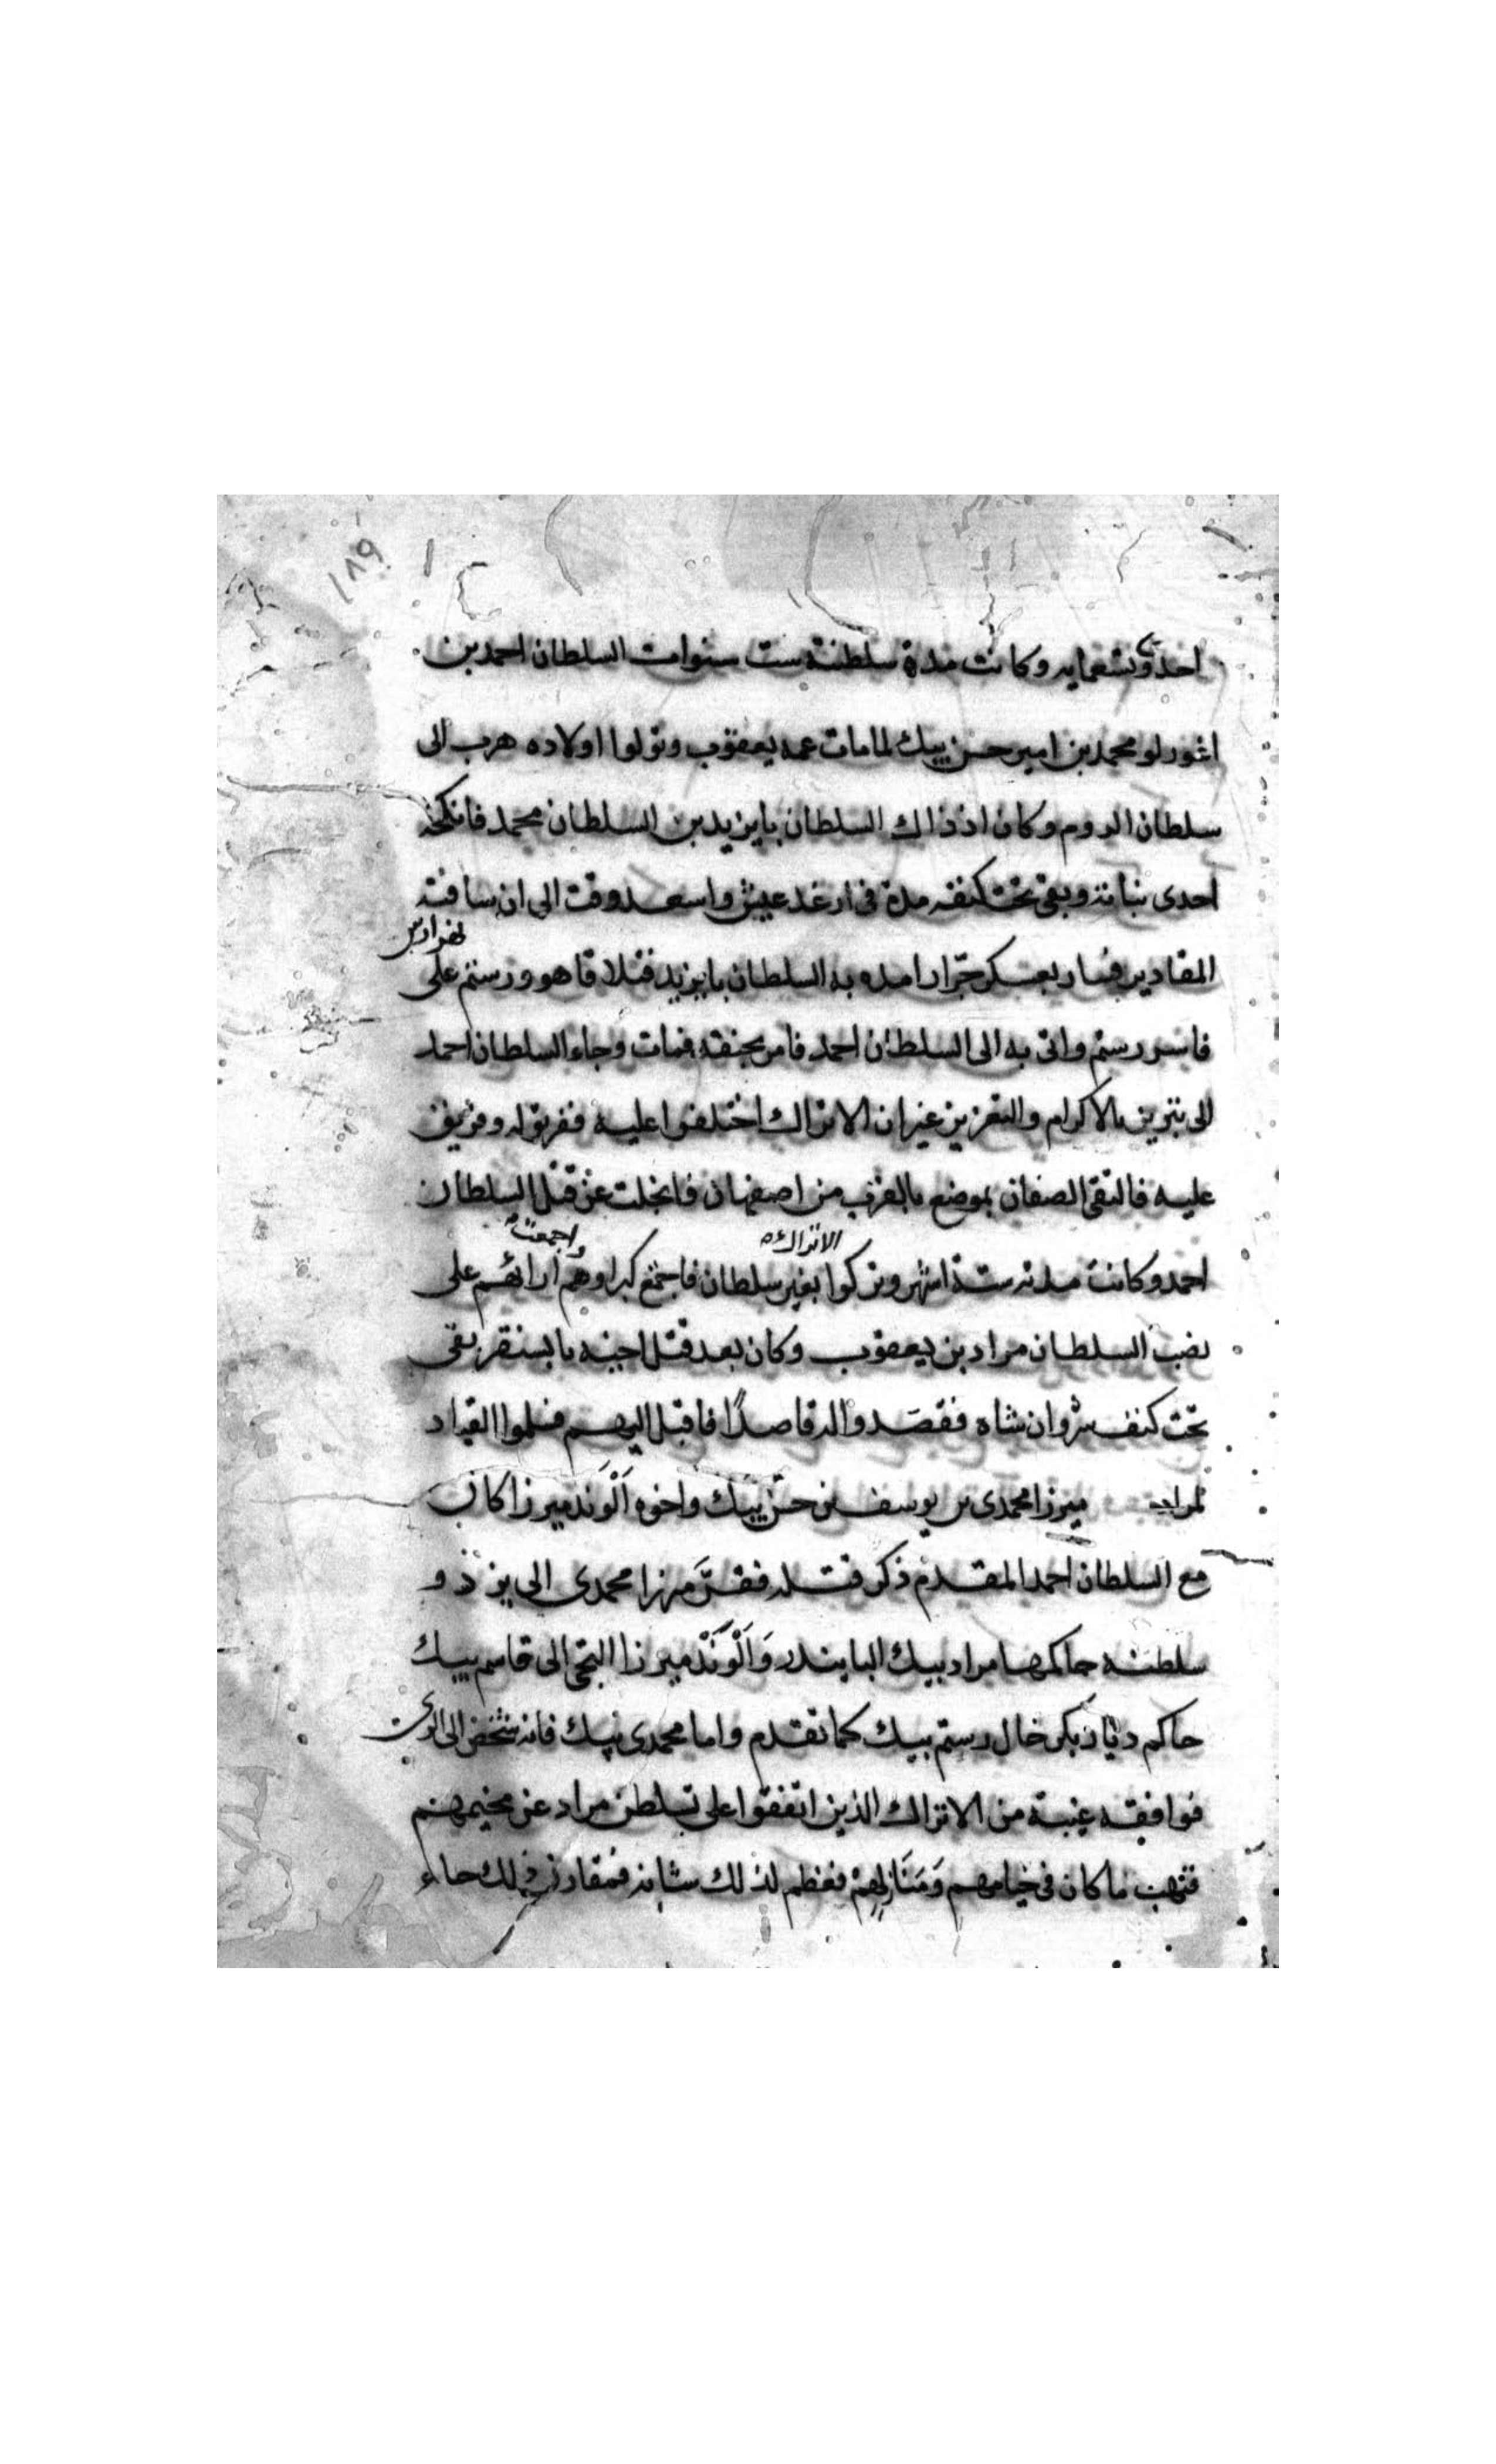 ١٨٩
احدى وتسعمايه وكانت مدة سلطنته ست سنوات السلطان احمد بن
اغورلو محمد بن امير حسن بيك لما مات عمه يعقوب وتولوا اولاده هرب الى
سلطان الروم وكان اذ ذاك السلطان بايزيد بن السلطان محمد فانكحه
احدى بناته وبقى تحت كنفه مدة فى ارغد عيش واسعد وقت الى ان ساقته
المقادير فسار بعسكر جرّار امده به السلطان بايزيد فتلاقا هو ورستم على نهر ارس
فاسر رستم واتى به الى السلطان احمد فامر بخنقه فمات وجاء السلطان احمد
الى تبريز بالاكرام والتعزيز غير ان الاتراك اختلفوا عليه ففريق له وفريق
عليه فالتقى الصفان بموضع بالقرب من اصفهان فانجلت عن قتل السلطان
احمد وكانت مدته ستة اشهر وتركوا الاتراك بغير سلطان فاجتمع كبراوهم واجمعت ارائهم على
نصب السلطان مراد بن يعقوب وكان بعد قتل اخيه بايسنقر بقى
تحت كنف شروان شاه فقصدوا له قاصدًا فاقبل اليهم فسلموا القياد
لمراد ميرزا محمدى بن يوسف بن حسن بيك واخوه اَلْوَند ميرزا كان
مع السلطان احمد المقدم ذكر قتله ففرَّ مرزا محمدى الى يزد و
سلطنه حاكمها مراد بيك البايندر وَاَلْوَنَدْ ميرزا التجى الى قاسم بيك
حاكم ديار بكر خال رستم بيك كما تقدم واما محمدى بيك فانه شخص الى الرى
فوافقه غيبة من الاتراك الذين اتفقوا على تسلطن مراد عن مخيمهم
فنهب ما كان فى خيامهم وَمَنَازِلِهِمْ فعظم لذلك شانه فمقارن ذلك جاء